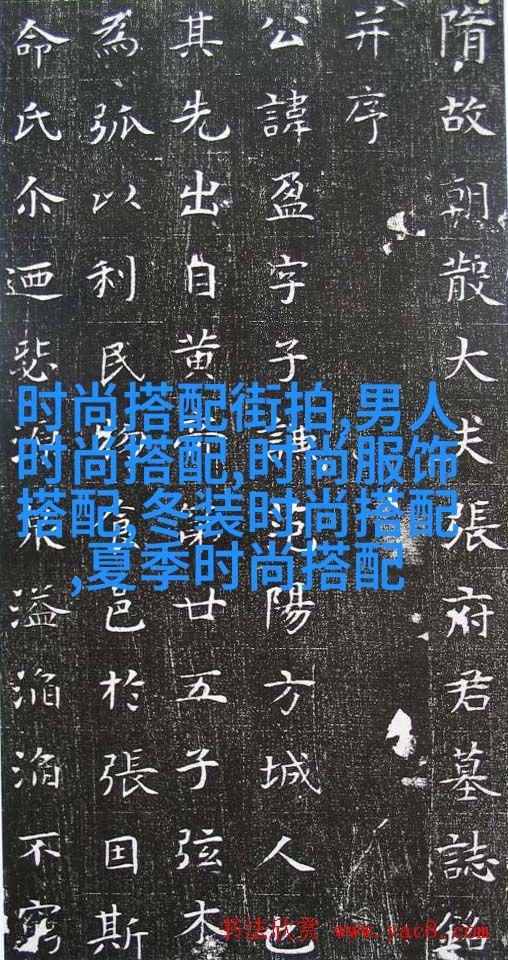 隋故朝散大夫張府君墓誌銘
并序
公諱盈字子謙范陽方城人也
其先出自黃帝第廿五子弦木
為弧以利民邑於張因斯
命氏尒迺源溢滔滔不窮
时尚搭配街拍,男人
时尚搭配,时尚服饰
搭配,冬装时尚搭配
,夏季时尚搭配
书法欣赏 www.yac8.com